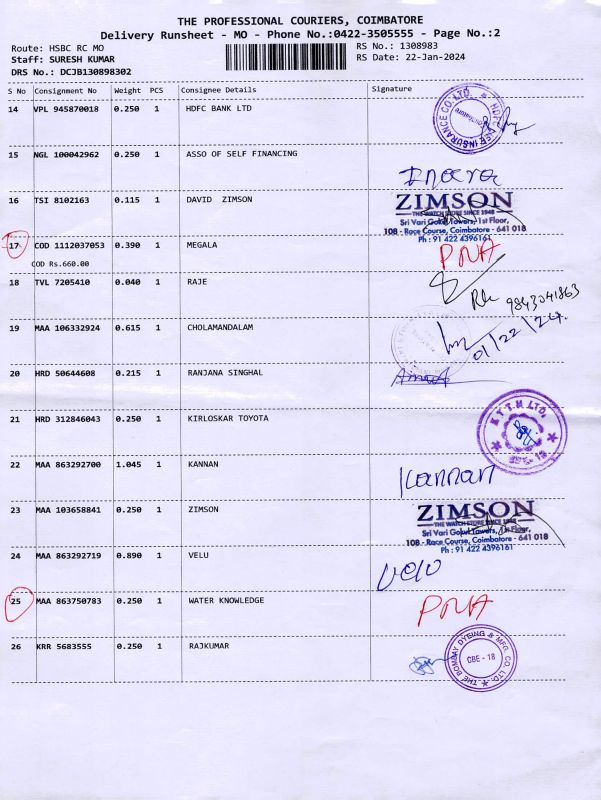 THE PROFESSIONAL COURIERS, COIMBATORE
Delivery Runsheet - MO - Phone No.:0422-3505555 - Page No.:2
Route: HSBC RC MO
RS No.: 1308983
Staff: SURESH KUMAR
RS Date: 22-Jan-2024
DRS No.: DCJB130898302
S No Consignment No Weight PCS Consignee Details Signature
14 VPL 945870018 0.250 1 HDFC BANK LTD
15 NGL 100042962 0.250 1 ASSO OF SELF FINANCING
16 TSI 8102163 0.115 1 DAVID ZIMSON
ZIMSON
THE WATCH STORE SINCE 1948
Sri Vari Gokul Towers, 1st Floor,
108 - Race Course, Coimbatore - 641 018
Ph : 91 422 4396161
17 COD 1112037053 0.390 1 MEGALA PNA
COD Rs.660.00
18 TVL 7205410 0.040 1 RAJE
9843041863
19 MAA 106332924 0.615 1 CHOLAMANDALAM
01/22/24.
20 HRD 50644608 0.215 1 RANJANA SINGHAL
21 HRD 312846043 0.250 1 KIRLOSKAR TOYOTA
K.T.T.M. LTD.
22 MAA 863292700 1.045 1 KANNAN Kannan
23 MAA 103658841 0.250 1 ZIMSON
ZIMSON
THE WATCH STORE SINCE 1948
Sri Vari Gokul Towers, 1st Floor,
108 - Race Course, Coimbatore - 641 018
Ph : 91 422 4396161
24 MAA 863292719 0.890 1 VELU Velu
25 MAA 863750783 0.250 1 WATER KNOWLEDGE PNA
26 KRR 5683555 0.250 1 RAJKUMAR
THE BOMBAY DYEING & MFG. CO. LTD.
CBE - 18